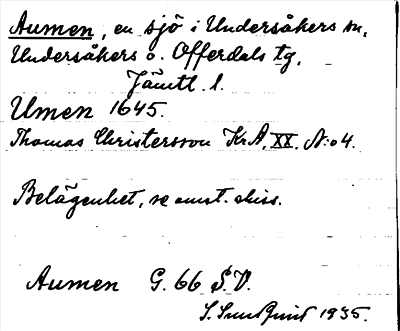 Aumen, en sjö i Undersåkers sn,
Undersåkers o. Offerdals tg,
Jämtl. l.
Umen 1645.
Thomas Christersson Kr.A, XX, N:o 4.
Belägenhet, se amst. skiss.
Aumen G. 66 S.V.
S. Sundqvist 1935.